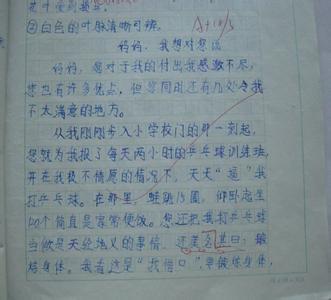 ②白色的叶脉清晰可辨。
妈妈，我想对您说
妈妈，您对于我的付出我感激不尽，
您也有许多优点，但您同时还有几处令我
不太满意的地方。
从我刚刚步入小学校门的那一刻起，
您就为我报了每天两小时的乒乓球训练班，
并在我极不情愿的情况下，天天“逼”我
打乒乓球。在那里，蛙跳15圈，仰卧起坐
100个简直是家常便饭。您还把我打乒乓球
当做是天经地义的事情，还美名其曰：锻
炼身体，我看这是“找借口”，要锻炼身体，